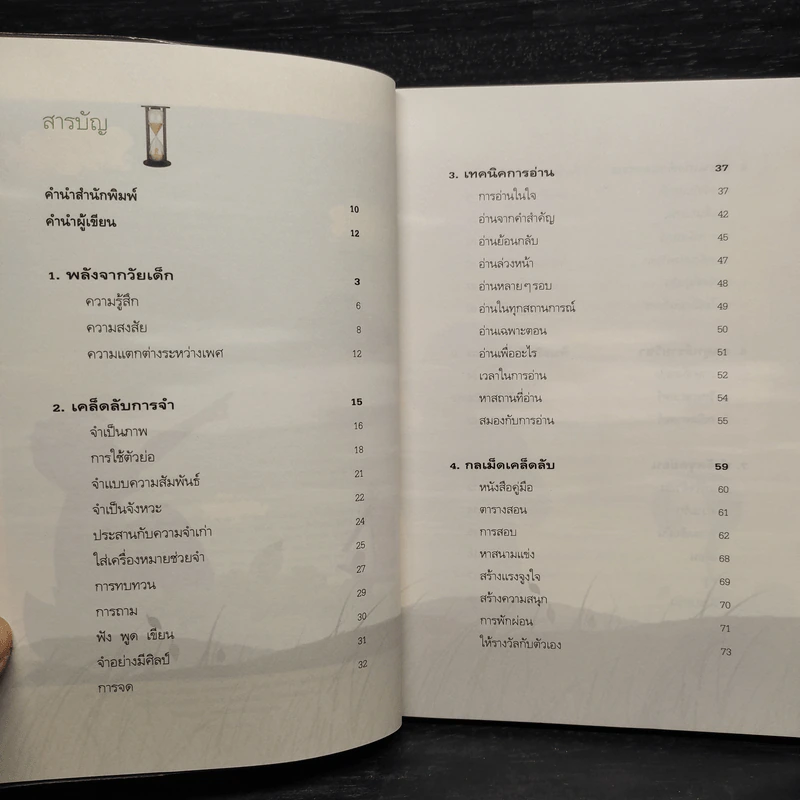 สารบัญ
คำนำสำนักพิมพ์ 10
คำนำผู้เขียน 12
1. พลังจากวัยเด็ก 3
ความรู้สึก 6
ความสงสัย 8
ความแตกต่างระหว่างเพศ 12
2. เคล็ดลับการจำ 15
จำเป็นภาพ 16
การใช้ตัวย่อ 18
จำแบบความสัมพันธ์ 21
จำเป็นจังหวะ 22
ประสานกับความจำเก่า 24
ใส่เครื่องหมายช่วยจำ 25
การทบทวน 27
การถาม 29
ฟัง พูด เขียน 30
จำอย่างมีศิลป์ 31
การจด 32
3. เทคนิคการอ่าน 37
การอ่านในใจ 37
อ่านจากคำสำคัญ 42
อ่านย้อนกลับ 45
อ่านล่วงหน้า 47
อ่านหลายๆรอบ 48
อ่านในทุกสถานการณ์ 49
อ่านเฉพาะตอน 50
อ่านเพื่ออะไร 51
เวลาในการอ่าน 52
หาสถานที่อ่าน 54
สมองกับการอ่าน 55
4. กลเม็ดเคล็ดลับ 59
หนังสือคู่มือ 60
ตารางสอน 61
การสอบ 62
หาสนามแข่ง 68
สร้างแรงจูงใจ 69
สร้างความสนุก 70
การพักผ่อน 71
ให้รางวัลกับตัวเอง 73